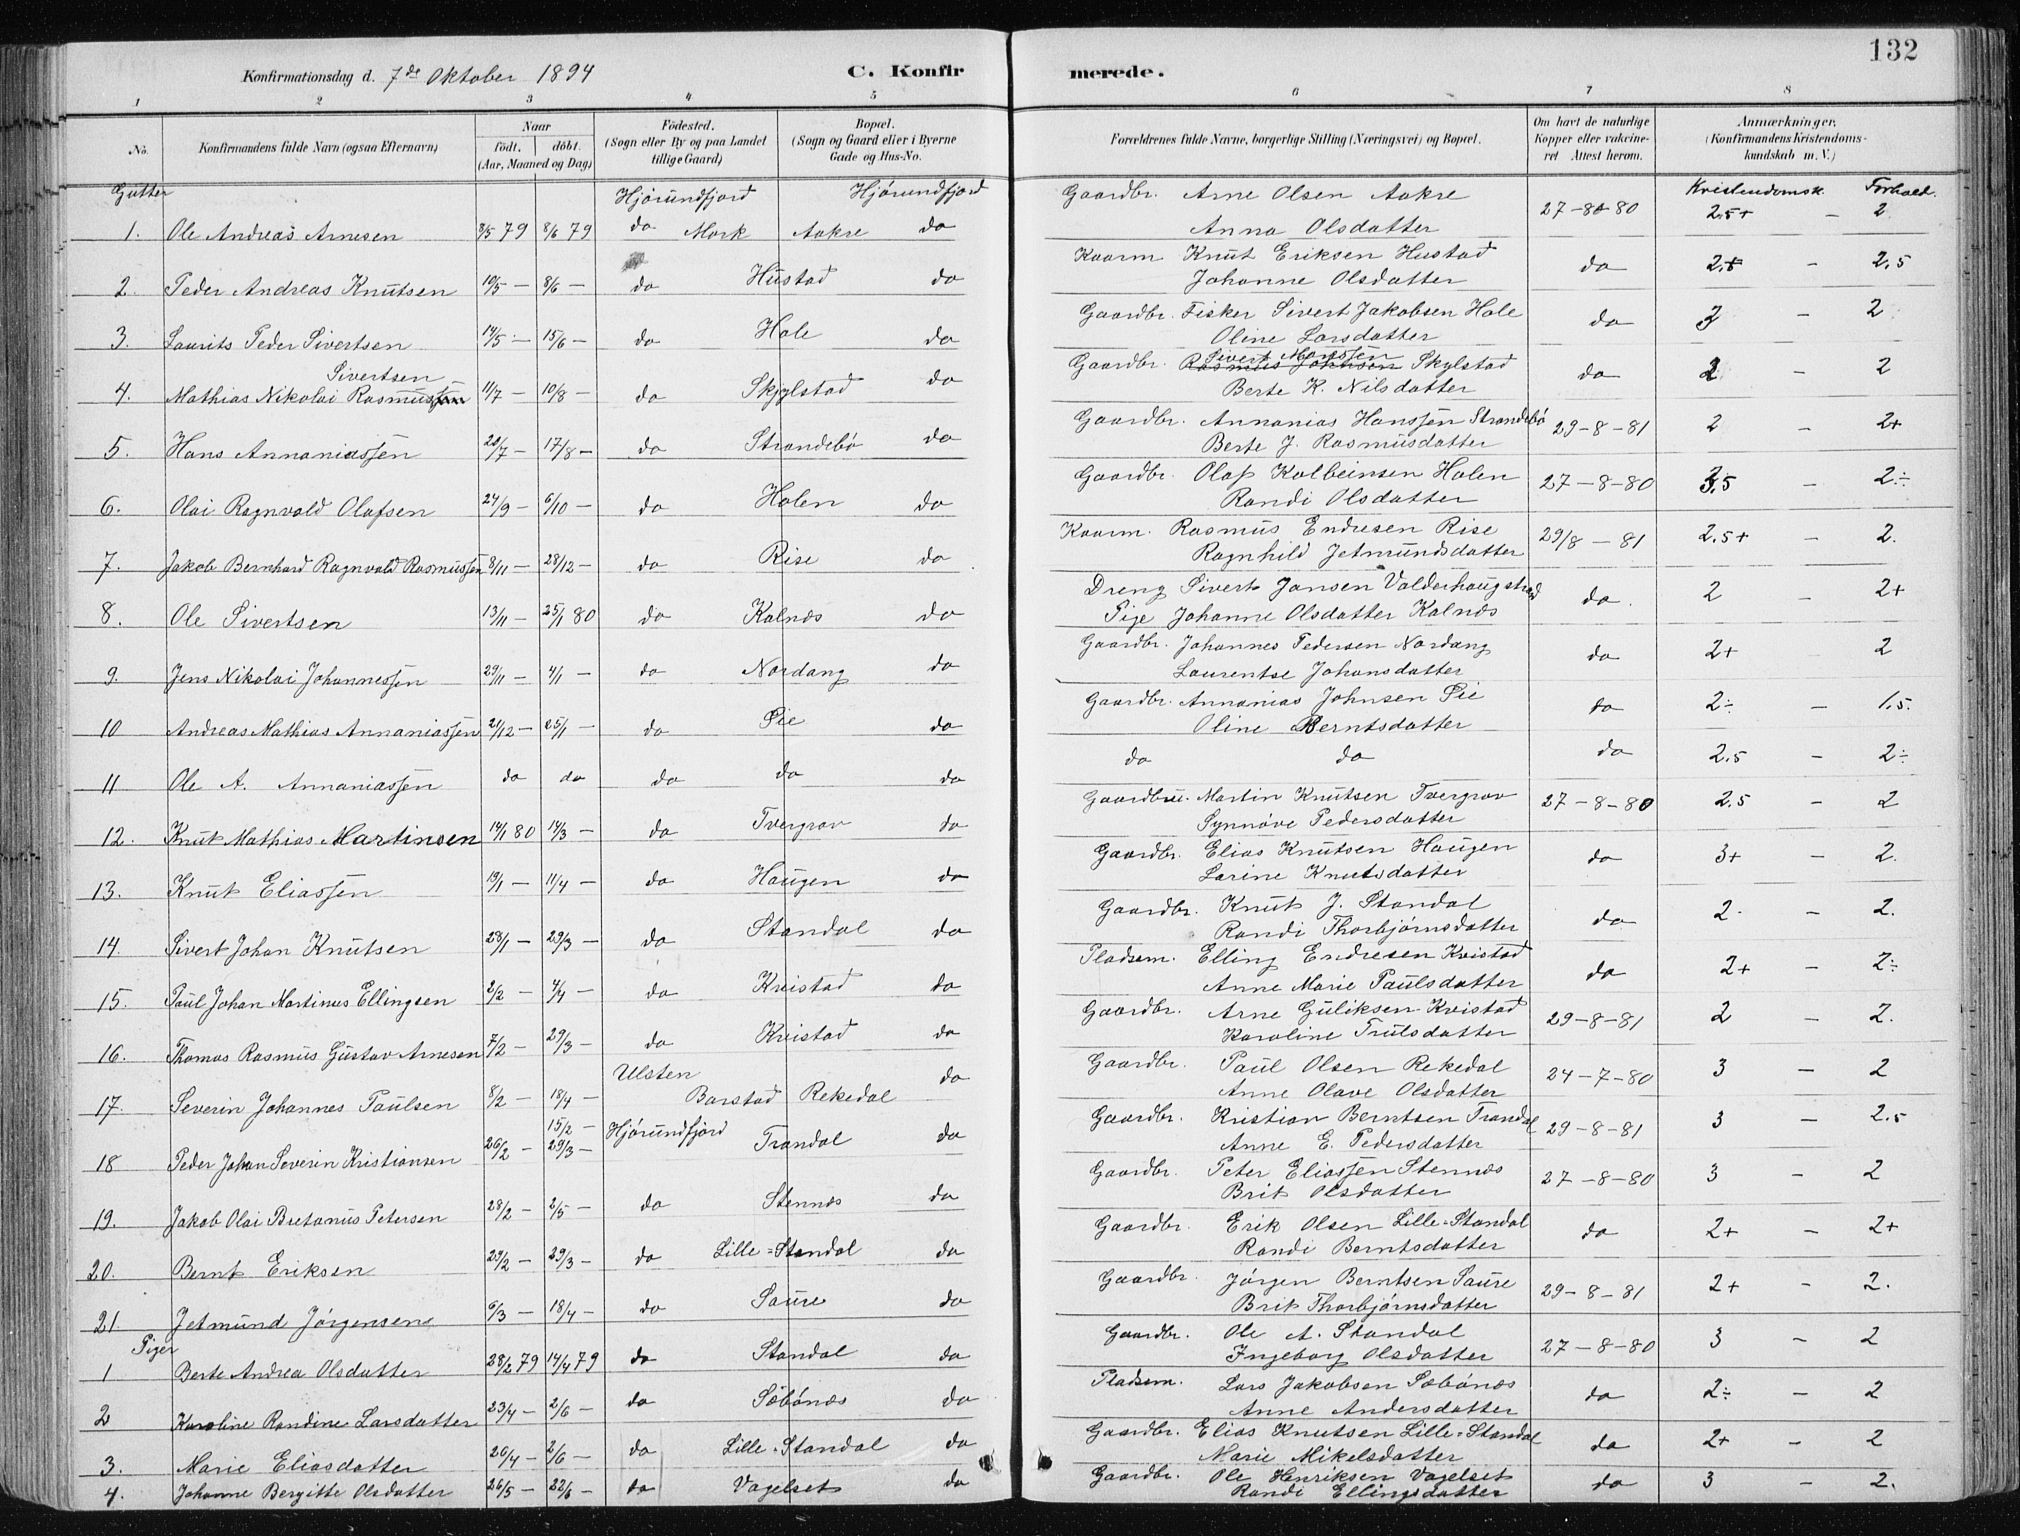 132
Konfirmationsdag d. 7de Oktober 1894 C. Konfir merede.
1 2 3 4 5 6 7 8
No. Konfirmandens fulde Navn (ogsaa Efternavn) Naar födt. döbt. (Aar, Maaned og Dag) Födested. (Sogn eller By og paa Landet tillige Gaard) Bopæl. (Sogn og Gaard eller i Byerne Gade og Hus-No. Forældrenes fulde Navne, borgerlige Stilling (Næringsvei) og Bopæl. Om havt de naturlige Kopper eller vakcineret Attest herom. Anmærkninger. (Konfirmandens Kristendomskundskab m. V.)
Gutter Hjørundfjord Hjørundfjord Kristendomsk. Forhold.
1. Ole Andreas Arnesen 3/5 79 8/6 79 do Mork Aakre do Gaardbr. Arne Olsen Aakre 27-8-80 2.5+ - 2
Anna Olsdatter
2. Peder Andreas Knutsen 10/5 - 8/6 - do Hustad do Kaarm Knut Eriksen Hustad do 2.5 - 2.5
Johanne Olsdatter
3. Laurits Peder Sivertsen 14/5 - 15/6 - do Hole do Gaardbr. Fisker Sivert Jakobsen Hole do 3 - 2
Oline Larsdatter
Sivertsen Sivert Monssen
4. Mathias Nikolai Rasmussen 11/7 - 10/8 - do Skylstad do Gaardbr. Rasmus Johnson Skylstad do 2 - 2
Berte K. Nilsdatter
5. Hans Annaniassen 20/7 - 17/8 - do Strandebø do Gaardbr. Annanias Hanssen Strandebø 29-8-81 2 - 2+
Berte J. Rasmusdatter
6. Olai Ragnvald Olafsen 24/9 - 6/10 - do Holen do Gaardbr. Olaf Kolbeinsen Holen 27-8-80 3.5 - 2÷
Randi Olsdatter
7. Jakob Bernhard Ragnvald Rasmussen 8/11 - 28/12 - do Rise do Kaarm. Rasmus Endresen Rise 29/8 - 81 2.5+ - 2.
Ragnhild Jetmundsdatter
8. Ole Sivertsen 13/11 - 25/1 80 do Kalnæs do Dreng Sivert Jansen Valderhaugstrand do. 2 - 2+
Pige Johanne Olsdatter Kalnæs
9. Jens Nikolai Johannessen 29/11 - 4/1 - do Nordang do Gaardbr. Johannes Pedersen Nordang do 2+ - 2
Laurentse Johansdatter
10 Andreas Mathias Annaniassen 21/12 - 25/1 - do Sie do Gaardbr. Annanias Johnsen Sie do 2÷ - 1.5.
Oline Berntsdatter
11 Ole A. Annaniassen do do do do do do do do 2.5 - 2÷
12. Knut Mathias Martinsen 14/1 80 14/3 - do Tvergrov do Gaardbru. Martin Knutsen Tvergrov 27-8-80 2.5 - 2
Synnøve Pedersdatter
13. Knut Eliassen 19/1 - 11/4 - do Haugen do Gaardbr. Elias Knutsen Haugen do 3+ - 2.
Larine Knutsdatter
14. Sivert Johan Knutsen 28/1 - 29/3 - do Standal do Gaardbr. Knut J. Standal do 2. - 2.
Randi Thorbjørnsdatter
15. Paul Johan Martinus Ellingsen 2/2 - 4/4 - do Kvistad do Pladsem. Elling Endresen Kvistad do 2+ - 2÷
Anne Marie Paulsdatter
16. Thomas Rasmus Gustav Arnesen 7/2 - 29/3 - do Kvistad do Gaardbr. Arne Guliksen Kvistad 29-8-81 2 - 2.
Karoline Trulsdatter
17. Severin Johannes Paulsen 8/2 - 18/4 - Ulsten Barstad Rekedal do Gaardbr. Paul Olsen Rekedal 24-7-80 3 - 2
Anne Olave Olsdatter
15/2 -
18 Peder Johan Severin Kristiansen 26/2 - 29/3 - Hjørundfjord Trandal do Gaardbr. Kristian Berntsen Trandal 29-8-81 3 - 2.5
Anne E. Pedersdatter
19. Jakob Olai Bretanus Petersen 28/2 - 2/5 - do Stennæs do Gaardbr. Peter Eliassen Stennæs 27-8-80 3 - 2
Brit Olsdatter
20. Bernt Eriksen 29/2 - 29/3 - do Lille-Standal do Gaardbr. Erik Olsen Lille-Standal do 2+ - 2+
Randi Berntsdatter
21. Jetmund Jørgensen 6/3 - 18/4 - do Saure do Gaardbr. Jørgen Berntsen Saure 29-8-81 2+ - 2.
Brit Thorbjørnsdatter
Piger
1 Berte Andrea Olsdatter 28/2 79 14/4 79 do Standal do Gaardbr. Ole A. Standal 27-8-80 3 - 2
Ingeborg Olsdatter
2 Karoline Randine Larsdatter 23/4 - 2/6 - do Sæbønæs do Pladsem. Lars Jakobsen Sæbønæs do 2÷ - 2
Anne Andersdatter
3. Marie Eliasdatter 20/4 - 2/6 - do Lille-Standal do Gaardbr. Elias Knutsen Lille-Standal do 2+ - 2
Marie Mikelsdatter
4. Johanne Bergitte Olsdatter 26/5 - 22/6 - do Vagelset do Gaardbr. Ole Henriksen Vagelset do 3 - 2.
Randi Ellingsdatter